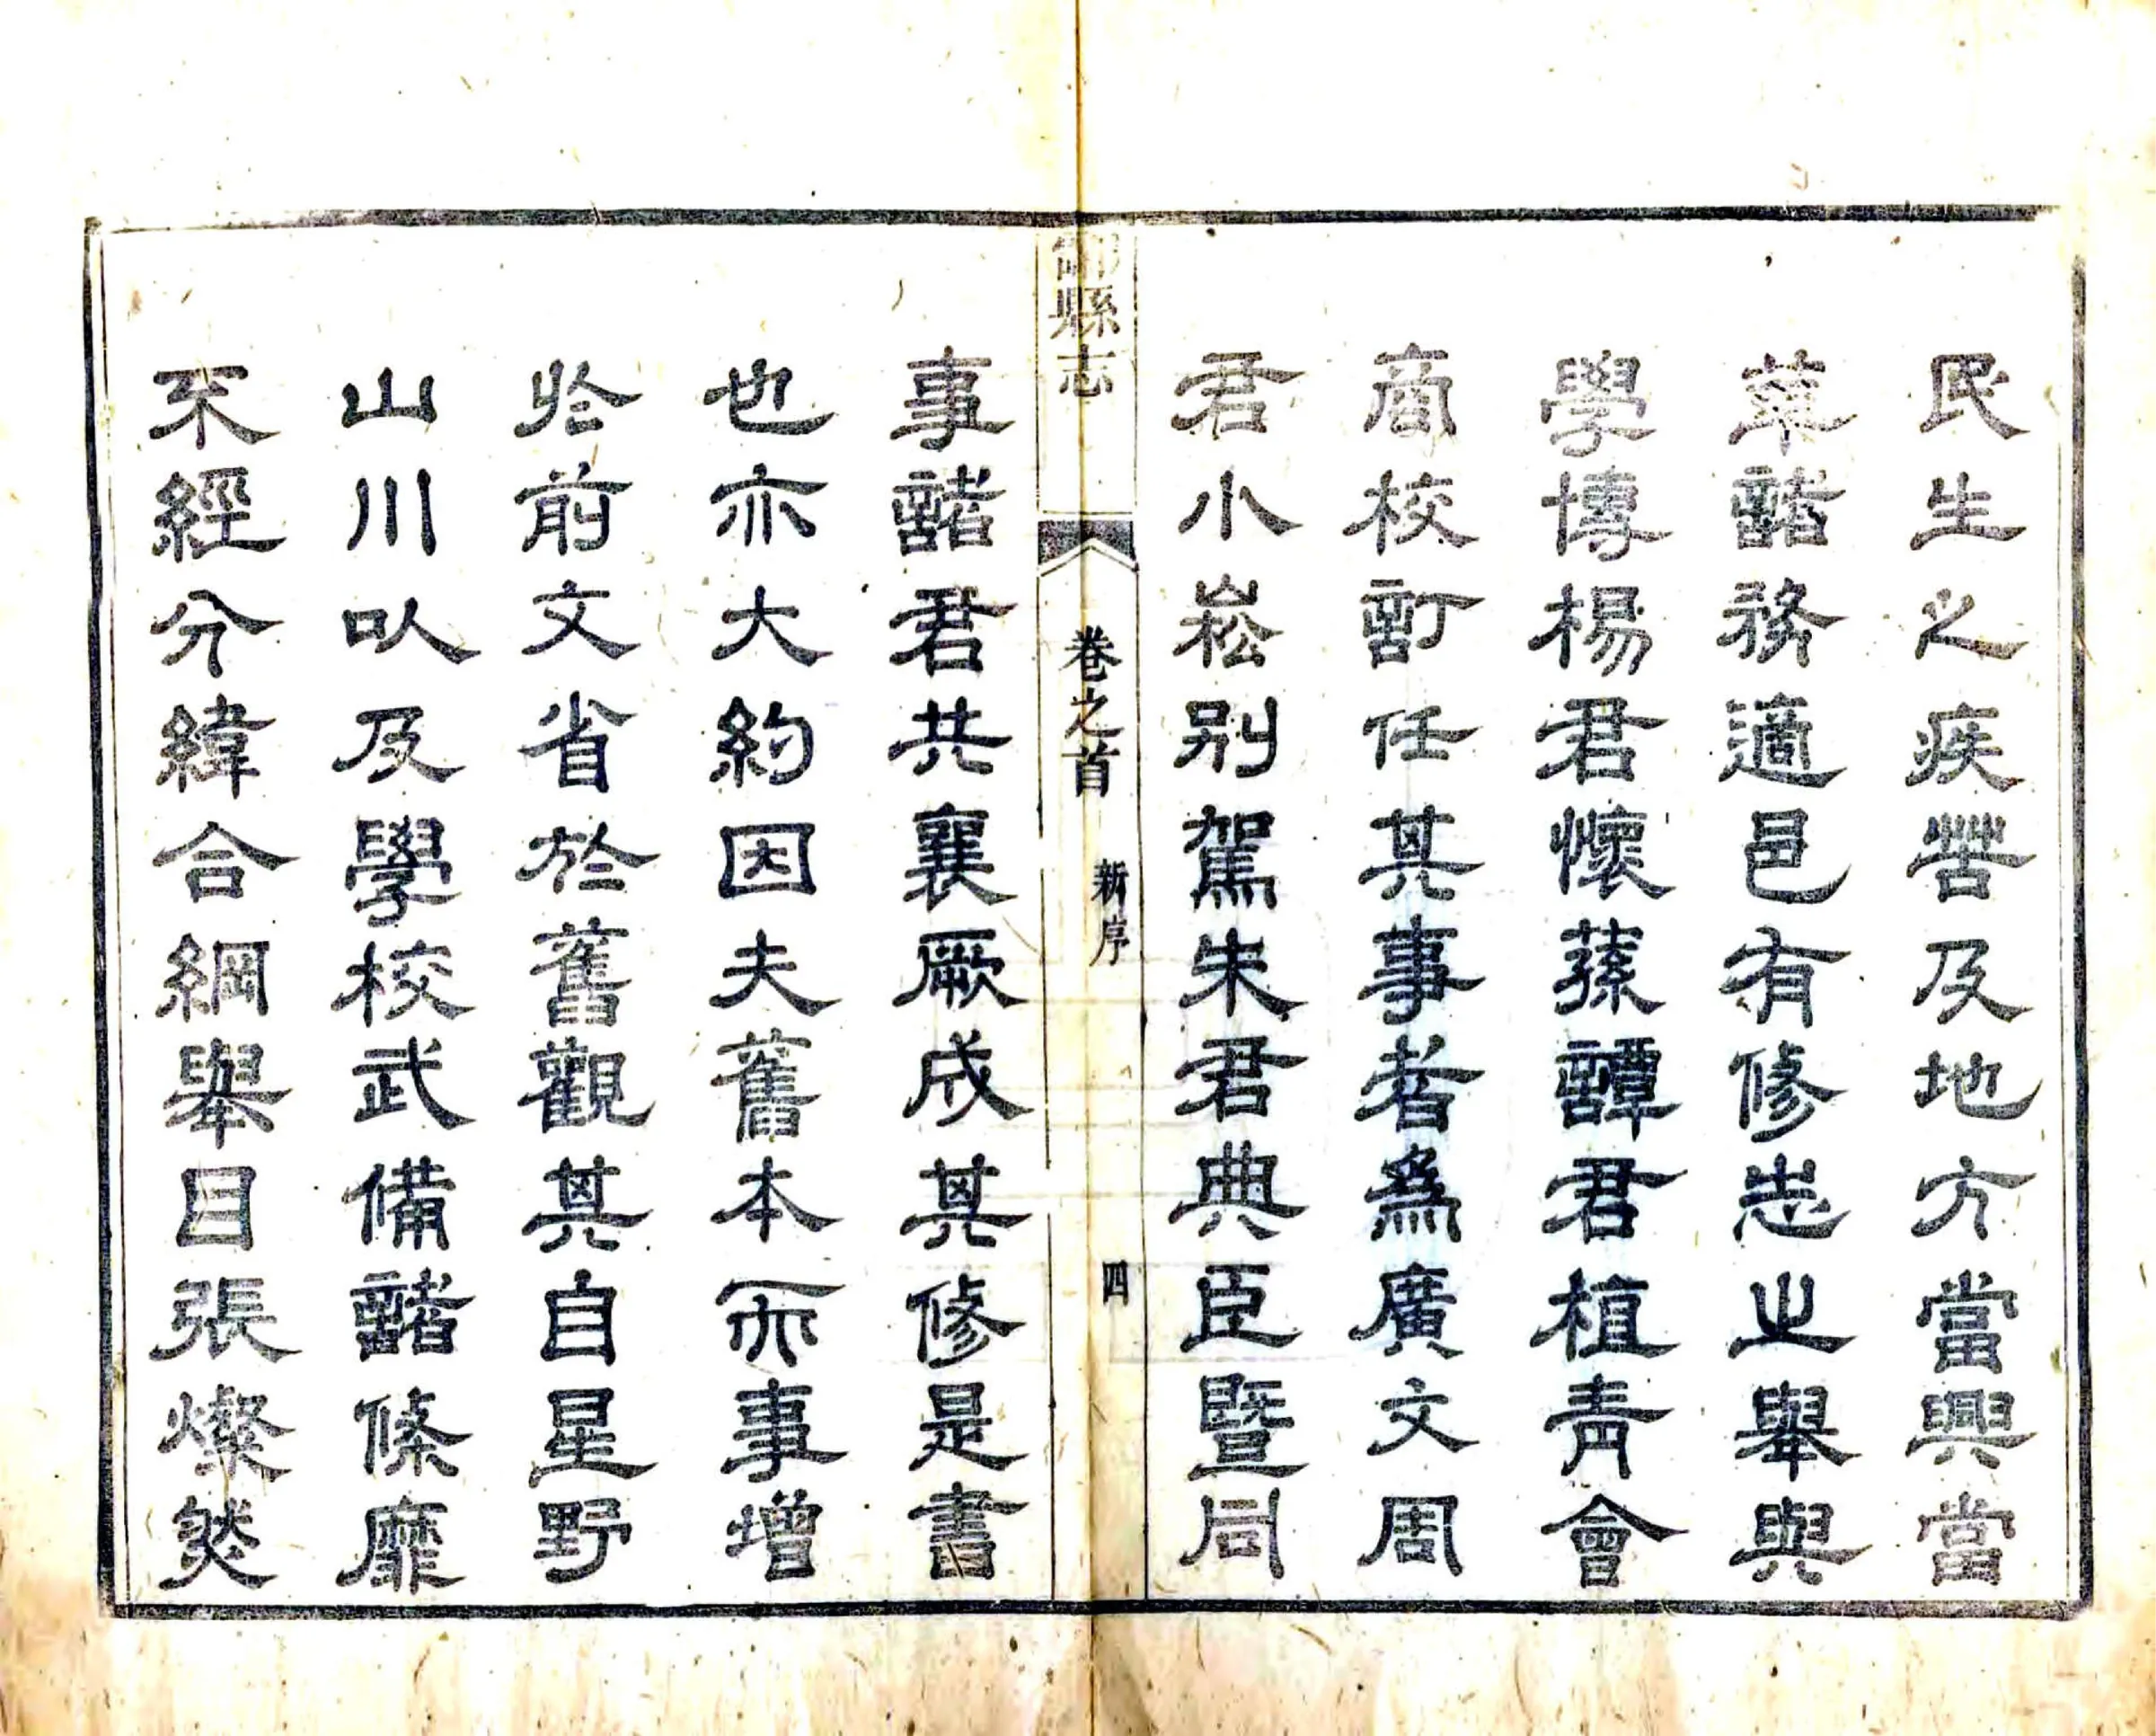 民生之疾苦及地方當興當
革諸務適邑有修志之舉與
學博楊君懷蓀譚君植青會
商校訂任其事者爲廣文周
君小崧別駕朱君典臣暨同
酃縣志
卷之首
新序
四
事諸君共襄厥成其修是書
也亦大約因夫舊本而事增
於前文省於舊觀其自星野
山川以及學校武備諸條靡
不經分緯合綱舉目張燦然